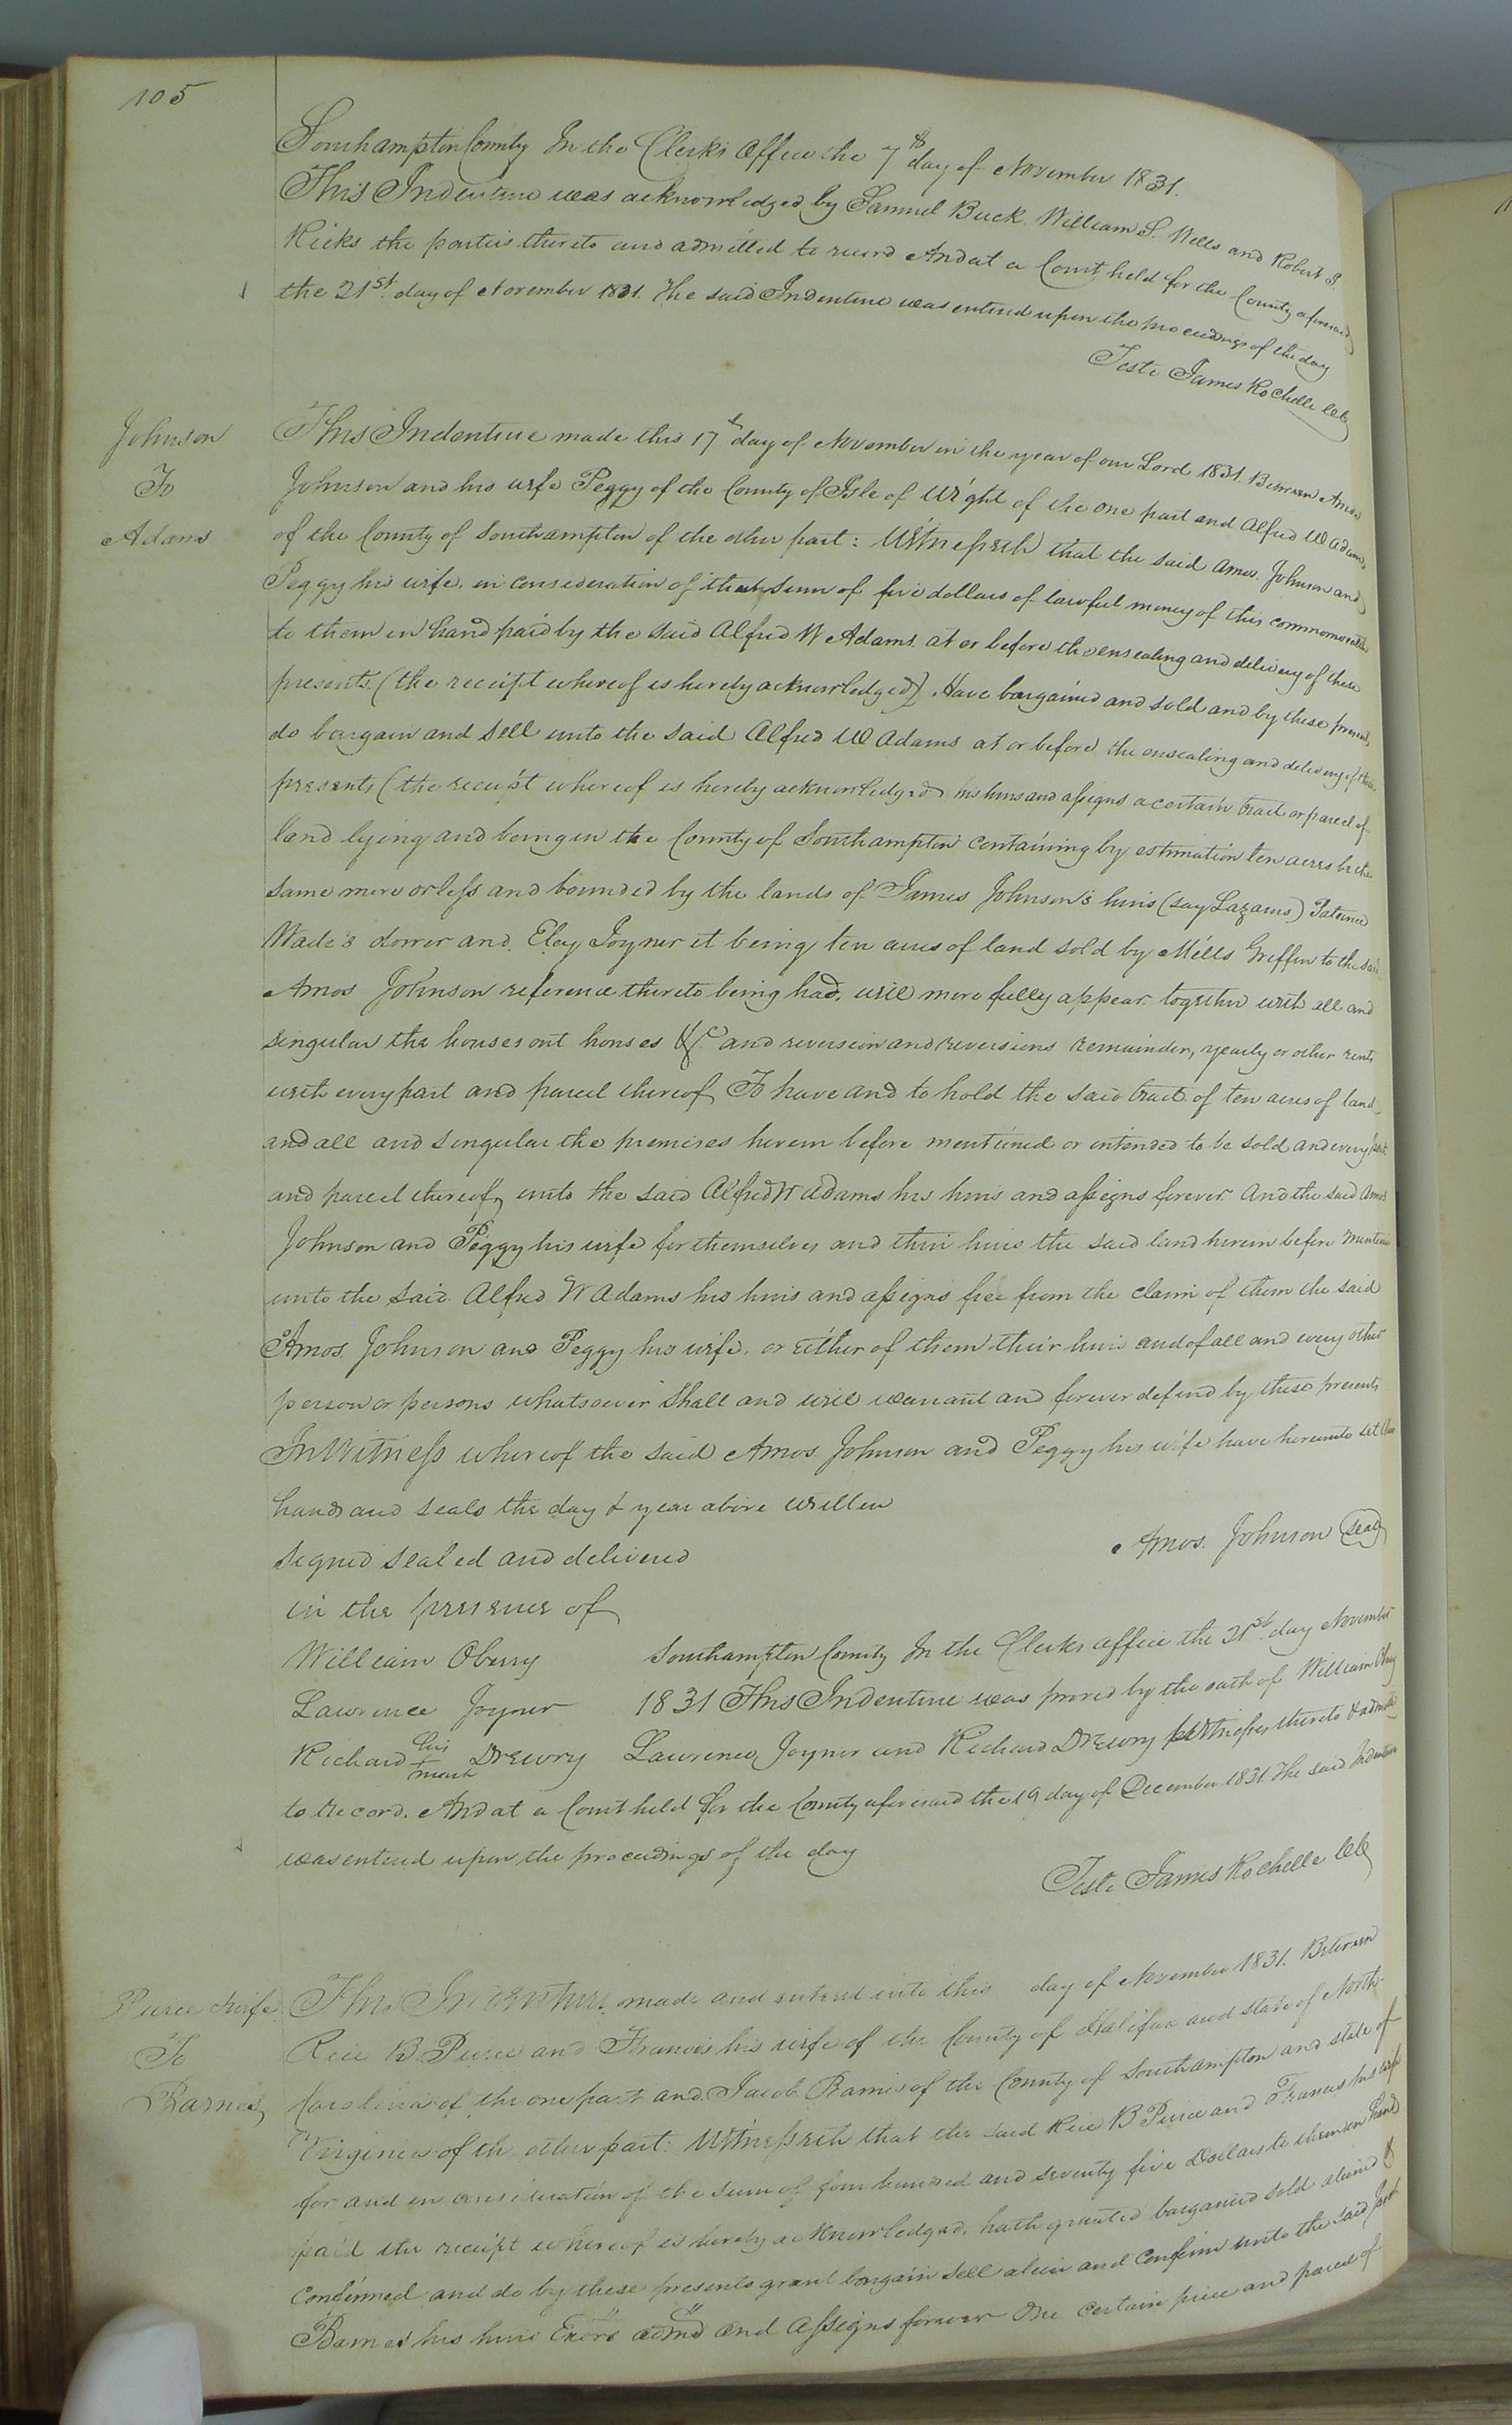 105
Southampton County In the Clerks Office the 7th day of November 1831.
This Indenture was acknowledged by Samuel Buck. William S. Wells and Robert S.
Ricks the parties thereto and admitted to record And at a Court held for the County aforesaid
the 21st. day of November 1831. The said Indenture was entered upon the proceedings of the day
Teste James Rochelle Clk
Johnson
To
Adams
This Indenture made this 17th day of November in the year of our Lord 1831. Between Amos
Johnson and his wife Peggy of the County of Isle of Wight of the one part and Alfred W Adams
of the County of Southampton of the other part: Witnesseth that the said Amos. Johnson and
Peggy his wife, in consideration of the sum of five dollars of lawful money of this commonwealth
to them in hand paid by the said Alfred W Adams. at or before the ensealing and delivery of these
presents. (the receipt whereof is hereby acknowledged) Have bargained and sold and by these presents,
do bargain and sell unto the said Alfred W Adams at or before the ensealing and delivery of these
presents (the receipt whereof is hereby acknowledged his heirs and assigns a certain tract or parcel of
land lying and being in the County of Southampton containing by estimation ten acres be the
same more or less and bounded by the lands of James Johnson's heirs (say Lazarus) Patience
Wade's dower and. Eley Joyner it being ten acres of land sold by Mills Griffin to the said
Amos Johnson reference thereto being had, will more fully appear. together with all and
singular the houses out houses &c. and reversion and reversions remainder, yearly or other rents
with every part and parcel thereof To have and to hold the said tract of ten acres of land
and all and singular the premises herein before mentioned or intended to be sold and every part
and parcel thereof, unto the said Alfred W Adams his heirs and assigns forever. And the said Amos
Johnson and Peggy his wife for themselves and their heirs the said land herein before mentioned
unto the said Alfred W Adams his heirs and assigns free from the claim of them the said
Amos. Johnson and Peggy his wife. or either of them their heirs and of all and every other
person or persons whatsoever shall and will warrant and forever defend by these presents
In Witness whereof the said Amos Johnson and Peggy his wife have hereunto set
hands and seals the day & year above written
Amos. Johnson seal
Signed sealed and delivered
in the presence of
William Oberry
Lawrence Joyner
Richard his mark Drewry
Southampton County In the Clerks office the 21st. day November
1831 This Indenture was proved by the oath of William Obery
Lawrence Joyner and Richard Drewry witnesses thereto & admitted
to record. And at a Court held for the County aforesaid the 19 day of December 1831. The said Indenture
was entered upon the proceedings of the day
Teste James Rochelle Clk
Pierce & wife
To
Barnes
This Indenture made and entered into this day of November 1831. Between
Rice B. Pierce and Frances his wife of the County of Halifax and state of North
Carolina of the one part and. Jacob Barnes of the County of Southampton and state of
Virginia of the other part: Witnesseth that the said Rice B Pierce and Frances his wife
for and in consideration of the sum of four hundred and seventy five Dollars to them in hand
paid the receipt whereof is hereby acknowledged, hath granted bargained sold aliened &
confirmed and do by these presents grant bargain sell alien and confirm unto the said Jacob
Barnes his heirs Exors admrs and assigns forever One certain piece and parcel of